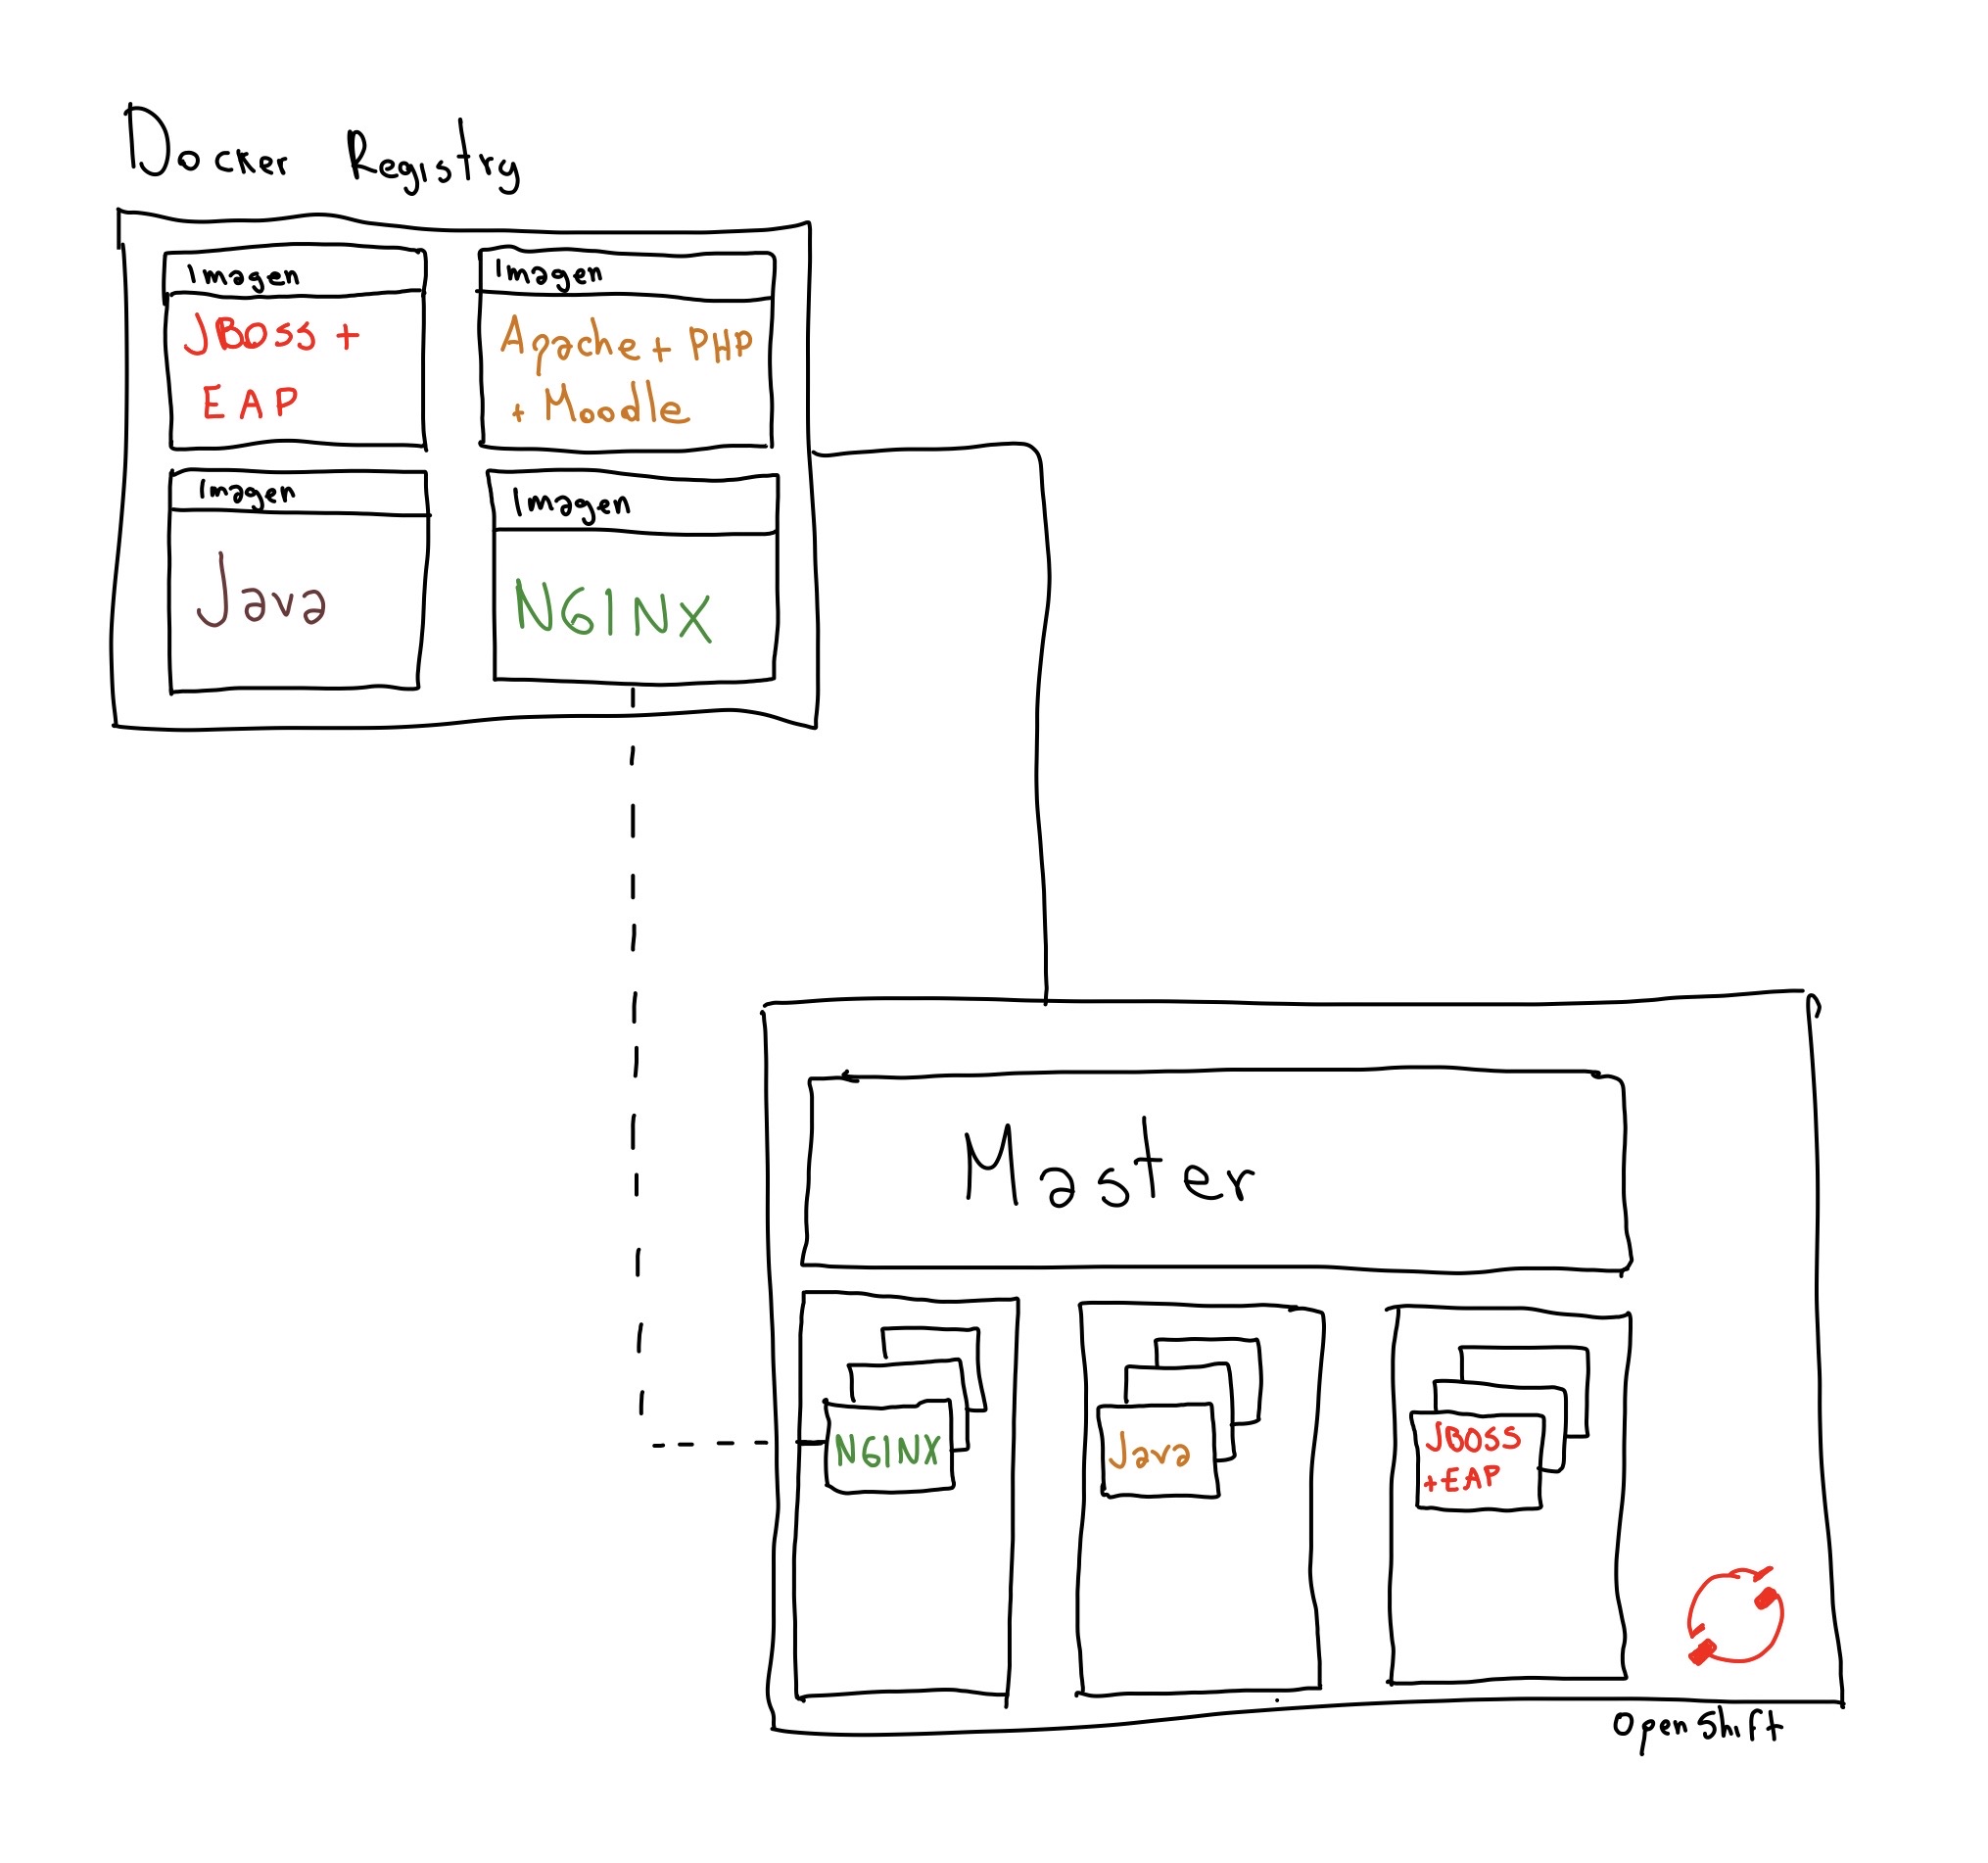 Docker Registry
Imagen
JBoss +
EAP
Imagen
Apache + PHP
+ Moodle
Imagen
Java
Imagen
NGINX
Master
NGINX
Java
JBOSS
+EAP
OpenShift